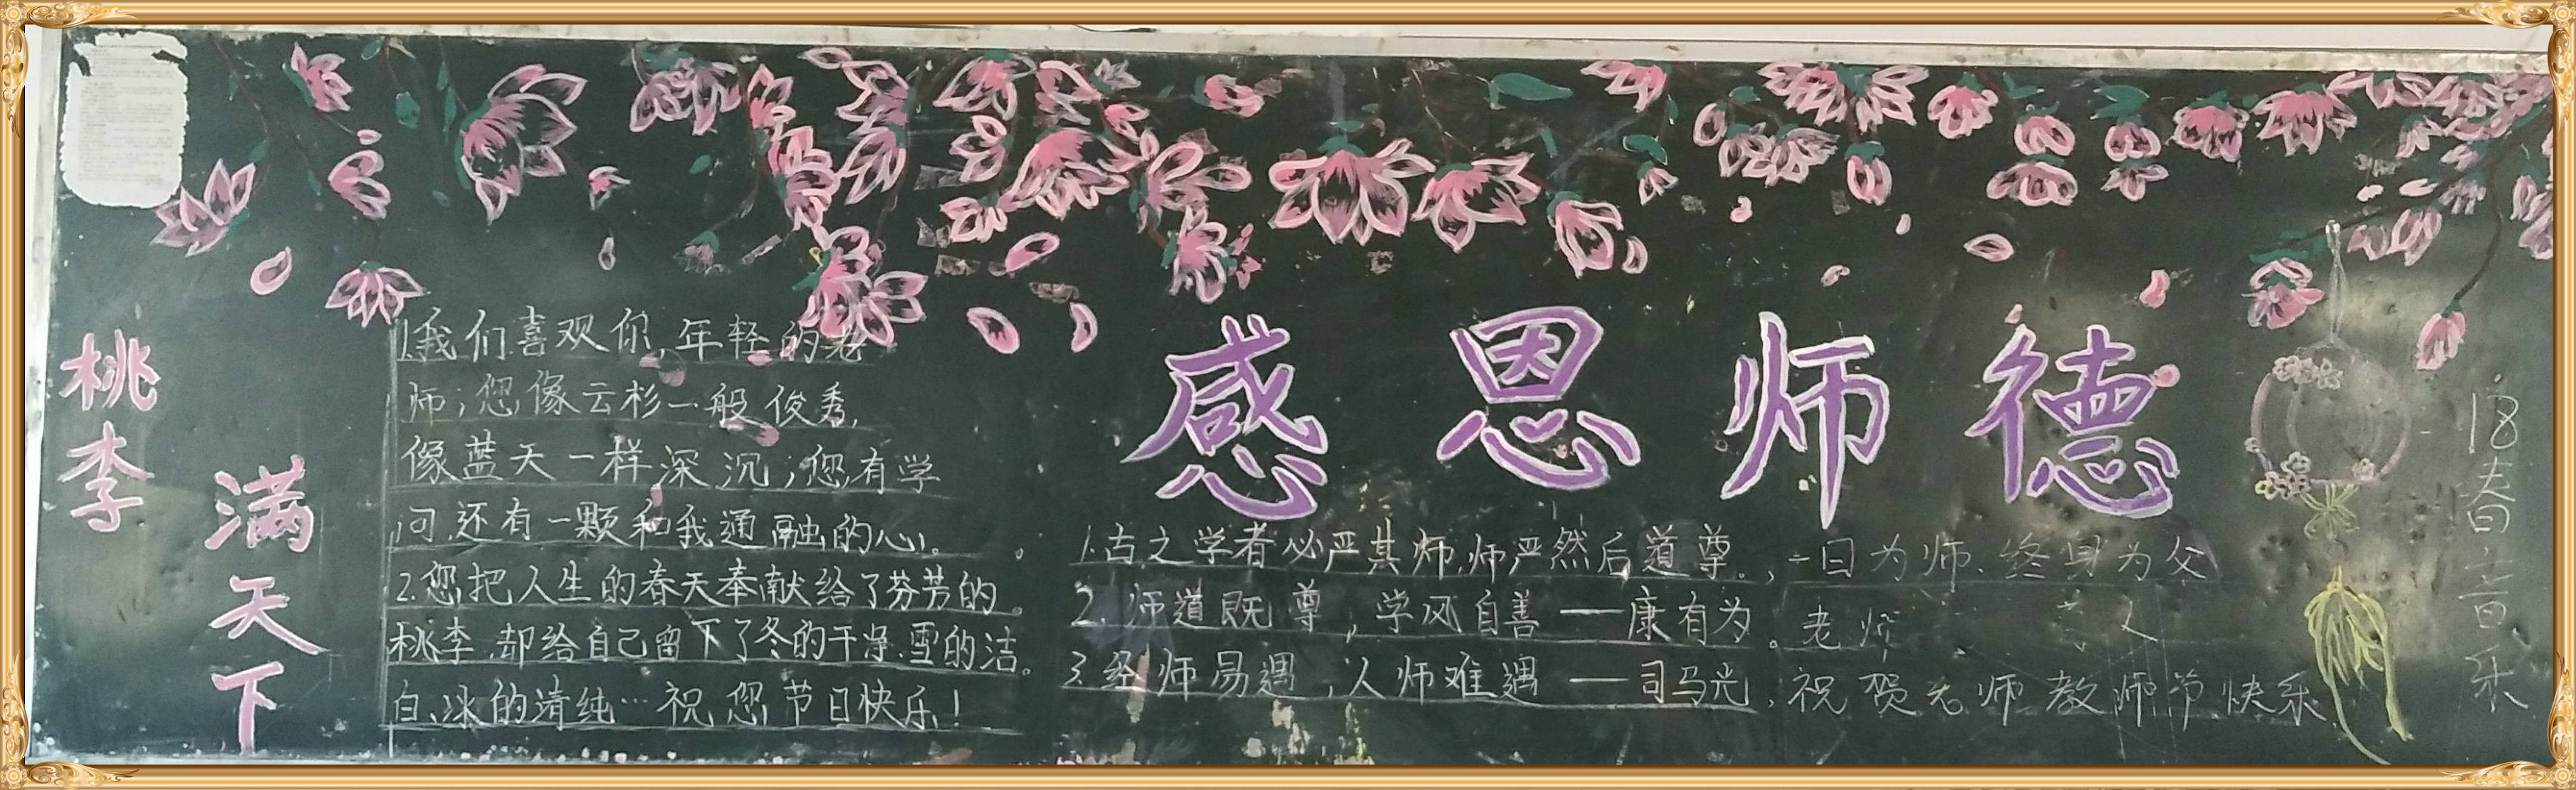 桃李
满天下
1.我们喜观你,年轻的老
师;您像云杉一般俊秀,
像蓝天一样深沉;您有学
问,还有一颗和我通融的心。
2.您把人生的春天奉献给了芬芳的
桃李,却给自己留下了冬的干净.雪的洁
白、冰的清纯…祝您节日快乐!
感恩师德
1.古之学者必严其师,师严然后道尊。
2.师道既尊,学风自善——康有为
3.经师易遇,人师难遇——司马光
一日为师.终身为父
老师
祝贺老师教师节快乐
18春音乐